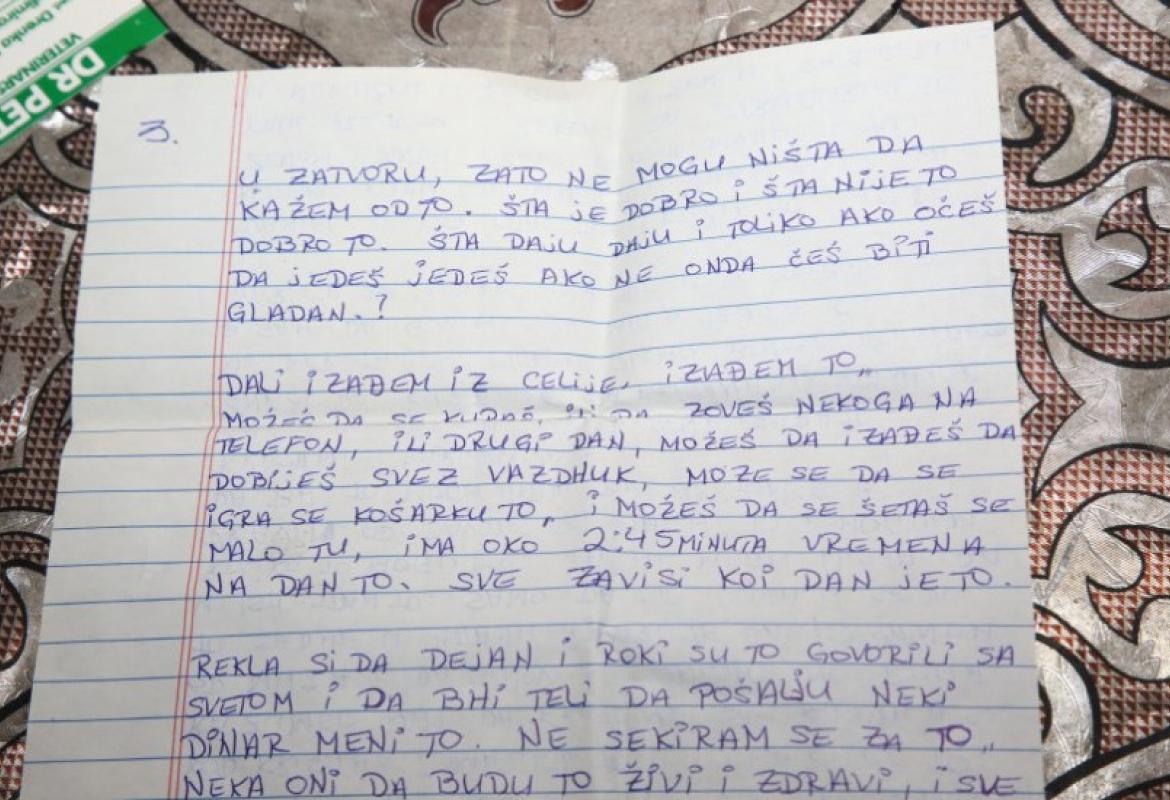 DR PET
VETERINARS
Drenka
3.
U ZATVORU, ZATO NE MOGU NIŠTA DA
KAŽEM OD TO. ŠTA JE DOBRO I ŠTA NIJE TO
DOBRO TO. ŠTA DAJU DAJU I TOLIKO AKO OČEŠ
DA JEDEŠ JEDEŠ AKO NE ONDA ČEŠ BITI
GLADAN.?
DALI IZAĐEM IZ CELIJE, IZAĐEM TO,,
MOŽEŠ DA SE KUPAŠ, ILI DA ZOVEŠ NEKOGA NA
TELEFON, ILI DRUGI DAN, MOŽEŠ DA IZAĐEŠ DA
DOBIJEŠ SVEZ VAZDHUK, MOZE SE DA SE
IGRA SE KOŠARKU TO,, I MOŽEŠ DA SE ŠETAŠ SE
MALO TU, IMA OKO 2:45 MINUTA VREMENA
NA DAN TO. SVE ZAVISI KOI DAN JE TO.
REKLA SI DA DEJAN I ROKI SU TO GOVORILI SA
SVETOM I DA BHI TELI DA POŠALJU NEKI
DINAR MENI TO. NE SEKIRAM SE ZA TO,,
NEKA ONI DA BUDU TO ŽIVI I ZDRAVI, I SVE